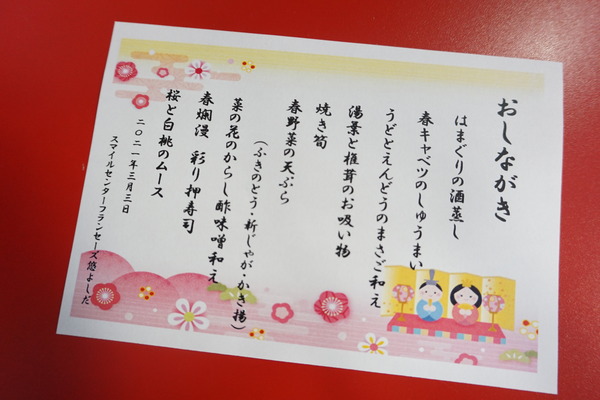 おしながき
はまぐりの酒蒸し
春キャベツのしゅうまい
うどとえんどうのまさご和え
湯葉と椎茸のお吸い物
焼き筍
春野菜の天ぷら
（ふきのとう・新じゃが・かき揚）
菜の花のからし酢味噌和え
春爛漫 彩り押寿司
桜と白桃のムース
二〇二一年三月三日
スマイルセンターフランセーズ悠よしだ